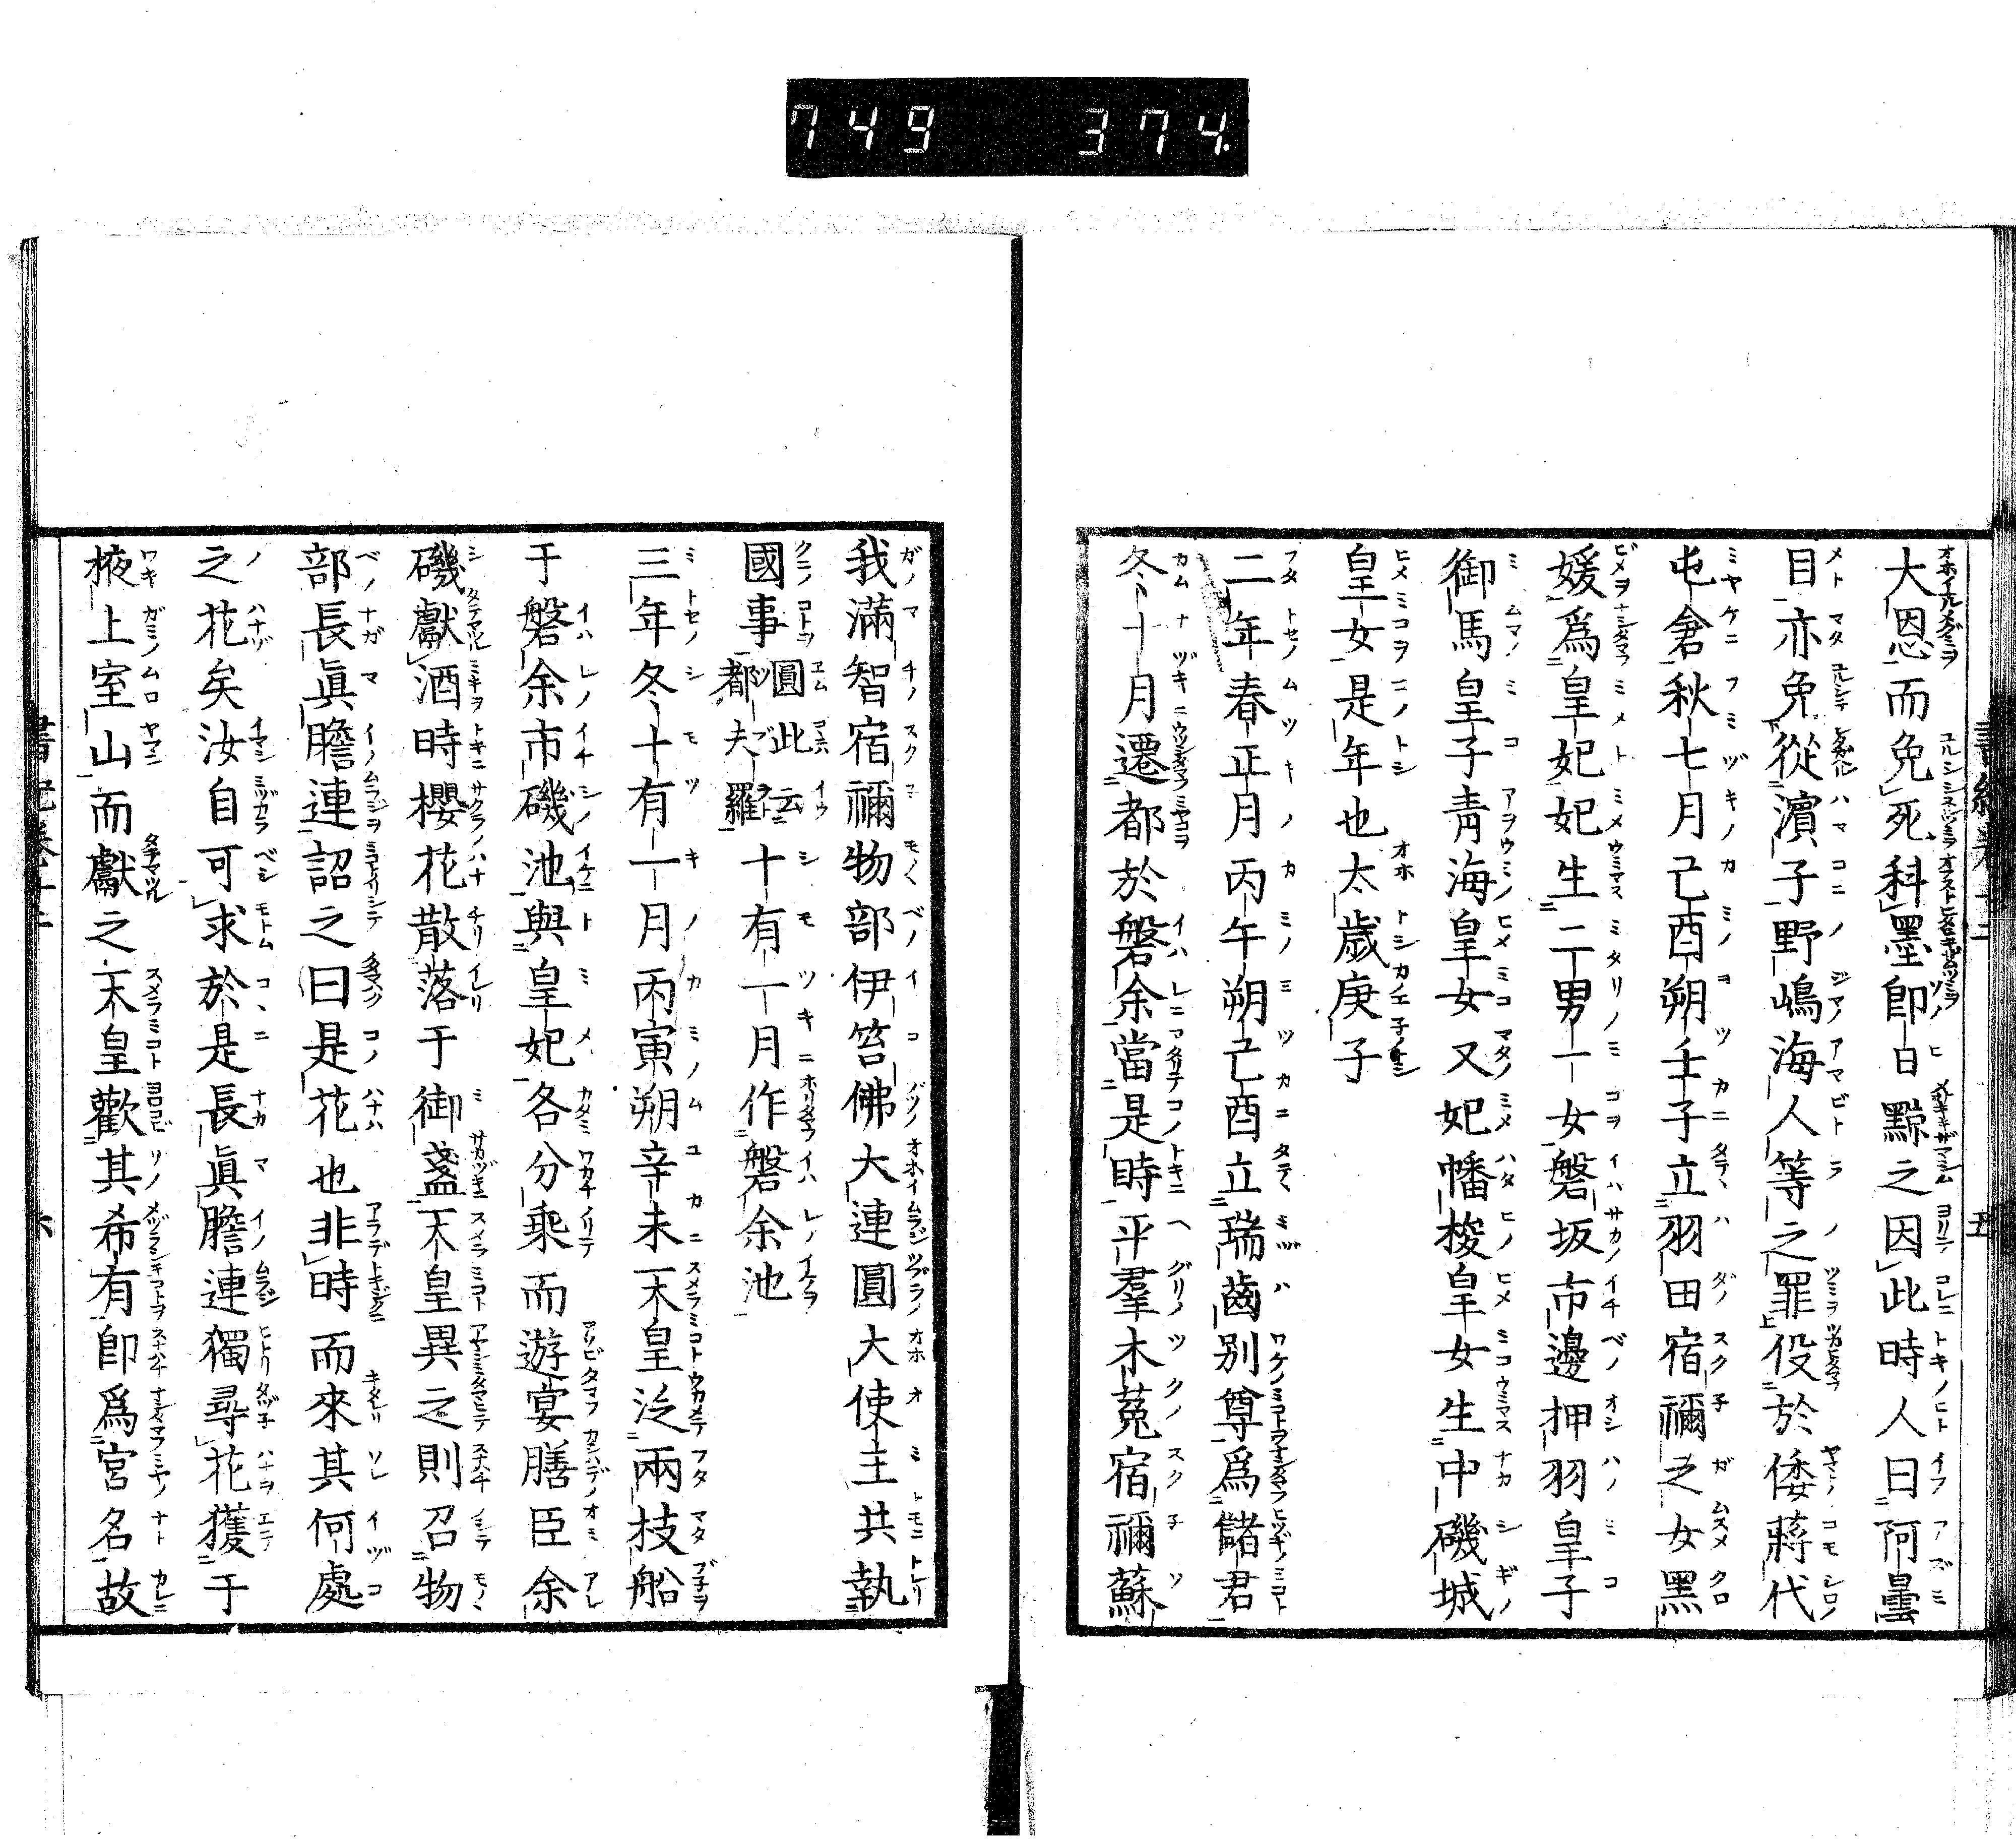 749 374.
大恩而免死科墨即日黥之因此時人曰阿曇
目亦免從濱子野嶋海人等之罪役於倭蔣代
屯倉秋七月己酉朔壬子立羽田宿禰之女黑
媛爲皇妃妃生二男一女磐坂市邊押羽皇子
御馬皇子青海皇女又妃幡梭皇女生中磯城
皇女是年也太歲庚子
二年春正月丙午朔己酉立瑞齒別尊爲儲君
冬十月遷都於磐余當是時平羣木菟宿禰蘇
我滿智宿禰物部伊莒佛大連圓大使主共執
國事圓此云都夫羅十有一月作磐余池
三年冬十有一月丙寅朔辛未天皇泛兩枝船
于磐余市磯池與皇妃各分乘而遊宴膳臣余
磯獻酒時櫻花散落于御盞天皇異之則召物
部長眞膽連詔之曰是花也非時而來其何處
之花矣汝自可求於是長眞膽連獨尋花獲于
掖上室山而獻之天皇歡其希有即爲宮名故